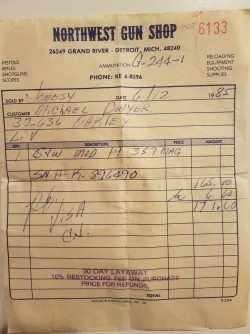 NORTHWEST GUN SHOP
6133
26249 GRAND RIVER - DETROIT, MICH. 48240
PISTOLS
RIFLES
SHOTGUNS
SCOPES
AMMUNITION G-244-1
PHONE: KE 4-8696
RELOADING
EQUIPMENT
SHOOTING
SUPPLIES
SOLD BY JONESY DATE 6/12 1985
CUSTOMER MICHAEL DWYER
32636
LIV
QTY. DESCRIPTION
1 S&W MOD 19 357 MAG
SN# 896490 165.00
6.60
VISA 171.60
30 DAY LAYAWAY
10% RESTOCKING FEE ON PURCHASE
PRICE FOR REFUNDS.
TOTAL